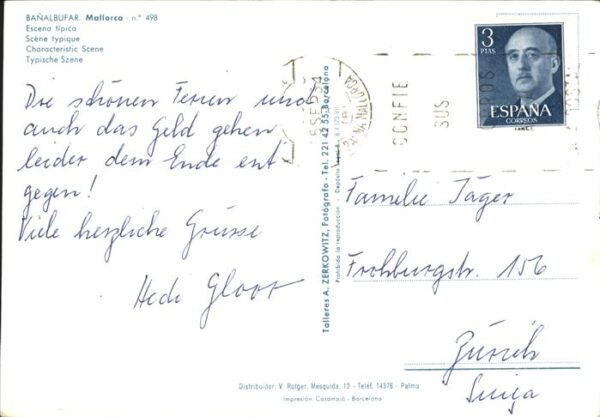 BAÑALBUFAR. Mallorca - n.° 498
Escena típica
Scène typique
Characteristic Scene
Typische Szene
Die schönen Ferien und
auch das Geld gehen
leider dem Ende ent
gegen!
Viele herzliche Grüsse
Hedi Gloor
Talleres A. ZERKOWITZ, Fotógrafo - Tel. 221 42 55 Barcelona
Prohibida la reproducción
3
PTAS
ESPAÑA
CORREOS
CONFIE
SUS
Familie Jäger
Frohburgstr. 156
Zürich
Suiza
Distribuidor: V. Rotger, Mesquida, 12 - Teléf. 14376 - Palma
Impresión Casamajó - Barcelona